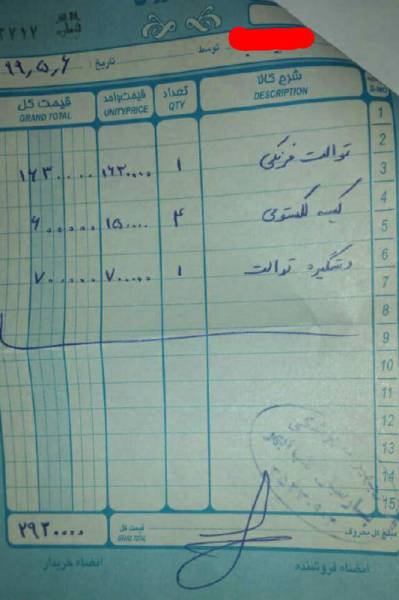 شماره
تاریخ : ۹۹،۵،۶ توسط
شرح کالا DESCRIPTION تعداد QTY قیمت واحد UNITY PRICE قیمت کل GRAND TOTAL
1
2
3 توالت فرنگی ۱ ۱۶۳۰۰۰۰ ۱۶۳۰۰۰۰
4
5 کیسه کلستومی ۴ ۱۵۰۰۰۰ ۶۰۰۰۰۰
6
7 دستگیره توالت ۱ ۷۰۰۰۰۰ ۷۰۰۰۰۰
8
9
10
11
12
13
14
15
مبلغ کل بحروف قیمت کل GRAND TOTAL ۲۹۳۰۰۰۰
امضاء فروشنده امضاء خریدار